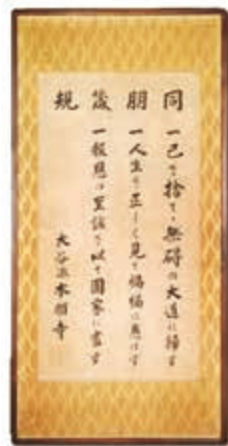 同朋箴規
一己を捨てゝ無碍の大道に歸す
一人生を正しく見て禍福に惑はず
一報恩の至誠を以て國家に盡す
大谷派本願寺